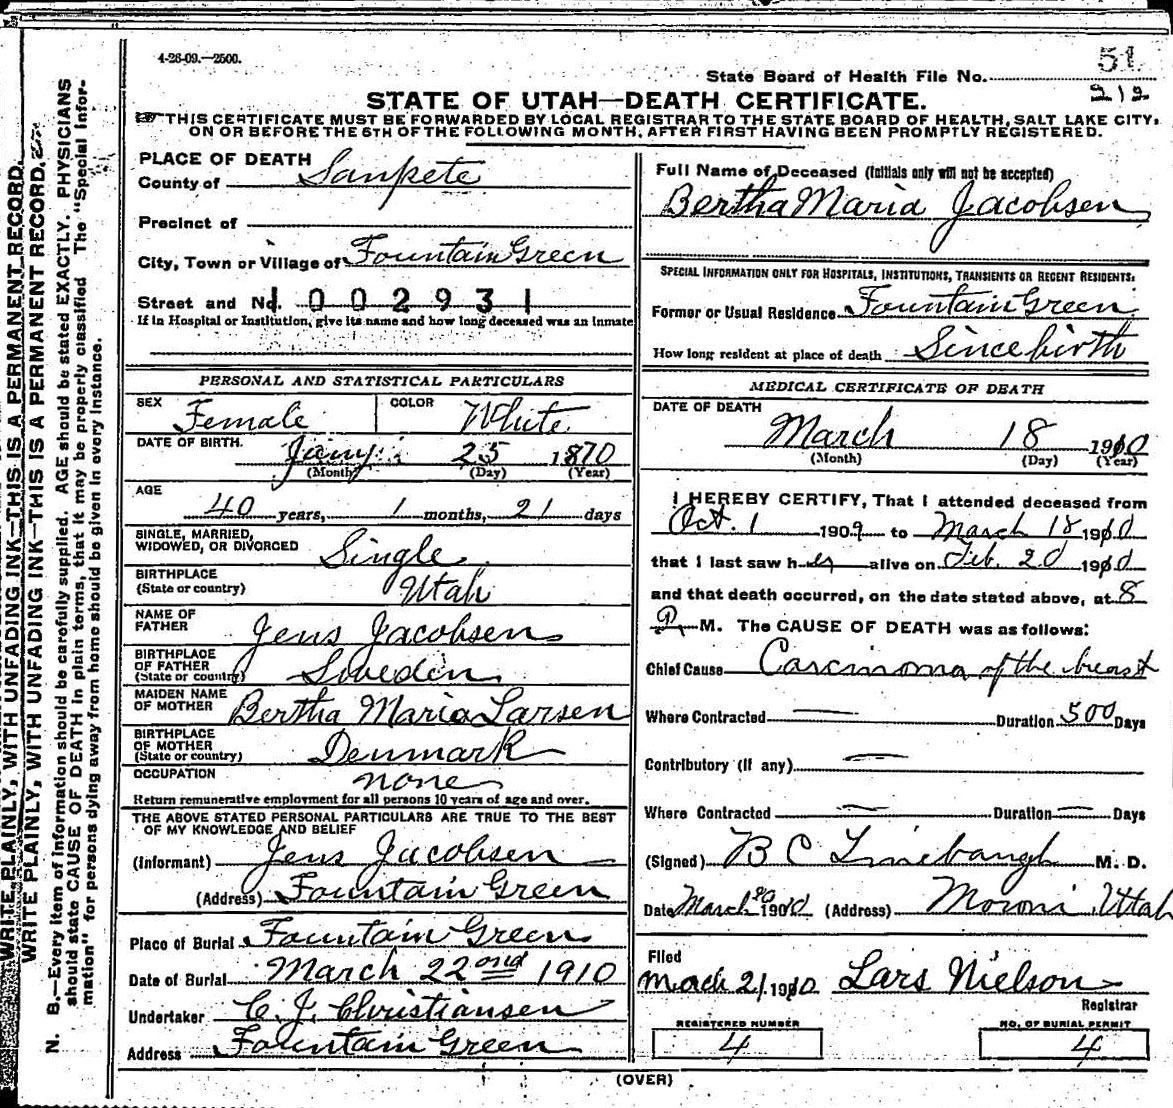 4-26-09.—2500.
51
State Board of Health File No.
212
STATE OF UTAH—DEATH CERTIFICATE.
THIS CERTIFICATE MUST BE FORWARDED BY LOCAL REGISTRAR TO THE STATE BOARD OF HEALTH, SALT LAKE CITY,
ON OR BEFORE THE 5TH OF THE FOLLOWING MONTH, AFTER FIRST HAVING BEEN PROMPTLY REGISTERED.
WRITE PLAINLY, WITH UNFADING INK—THIS IS A PERMANENT RECORD.
WRITE PLAINLY, WITH UNFADING INK—THIS IS A PERMANENT RECORD.
N. B.—Every item of information should be carefully supplied. AGE should be stated EXACTLY. PHYSICIANS
should state CAUSE OF DEATH in plain terms, that it may be properly classified The "Special Infor-
mation" for persons dying away from home should be given in every instance.
PLACE OF DEATH
County of Sanpete
Precinct of
City, Town or Village of Fountain Green
Street and No. 1002931
If in Hospital or Institution, give its name and how long deceased was an inmate
PERSONAL AND STATISTICAL PARTICULARS
SEX Female COLOR White
DATE OF BIRTH. Jany 25 1870
(Month) (Day) (Year)
AGE
40 years, 1 months, 21 days
SINGLE, MARRIED,
WIDOWED, OR DIVORCED Single
BIRTHPLACE
(State or country) Utah
NAME OF
FATHER Jens Jacobsen
BIRTHPLACE
OF FATHER
(State or country) Sweden
MAIDEN NAME
OF MOTHER Bertha Maria Larsen
BIRTHPLACE
OF MOTHER
(State or country) Denmark
OCCUPATION none
Return remunerative employment for all persons 10 years of age and over.
THE ABOVE STATED PERSONAL PARTICULARS ARE TRUE TO THE BEST
OF MY KNOWLEDGE AND BELIEF
(Informant) Jens Jacobsen
(Address) Fountain Green
Place of Burial Fountain Green
Date of Burial March 22nd 1910
Undertaker C. J. Christiansen
Address Fountain Green
Full Name of Deceased (Initials only will not be accepted)
Bertha Maria Jacobsen
SPECIAL INFORMATION ONLY FOR HOSPITALS, INSTITUTIONS, TRANSIENTS OR RECENT RESIDENTS:
Former or Usual Residence Fountain Green
How long resident at place of death Since birth
MEDICAL CERTIFICATE OF DEATH
DATE OF DEATH
March 18 1910
(Month) (Day) (Year)
I HEREBY CERTIFY, That I attended deceased from
Oct. 1 1909 to March 18 1910
that I last saw her alive on Feb. 20 1910
and that death occurred, on the date stated above, at 8
P. M. The CAUSE OF DEATH was as follows:
Chief Cause Carcinoma of the breast
Where Contracted Duration 500 Days
Contributory (if any)
Where Contracted Duration Days
(Signed) B C Linebaugh M. D.
Date March 1910 (Address) Moroni Utah
Filed
March 21, 1910 Lars Nielson
Registrar
REGISTERED NUMBER
4
NO. OF BURIAL PERMIT
4
(OVER)